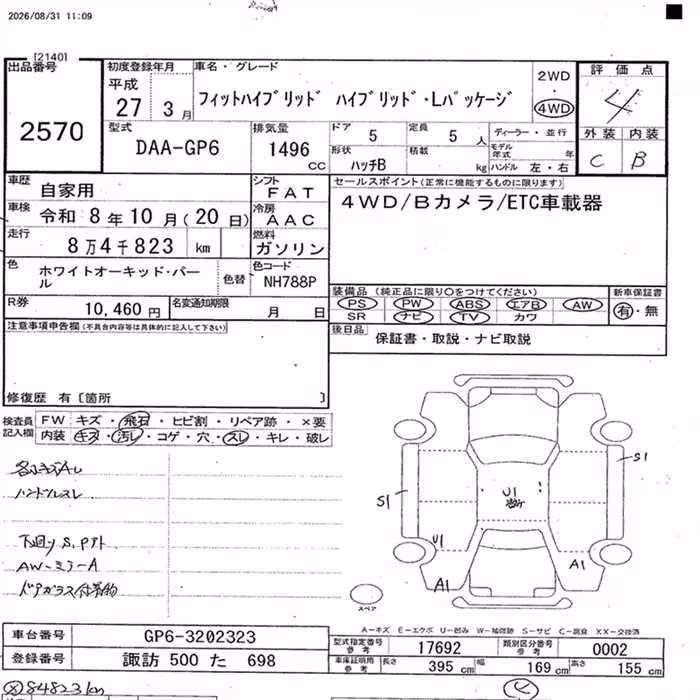 2026/08/31 11:09
[2140]
出品番号
2570
初度登録年月
平成
27 3月
車名・グレード
フィットハイブリッド ハイブリッド・Lパッケージ
2WD
・
4WD
評価点
4
外装 内装
C B
型式
DAA-GP6
排気量
1496
CC
ドア 5
定員 5 人
形状
ハッチB
積載
kg
ディーラー・並行
モデル年式 年
ハンドル 左・右
車歴 自家用
シフト
FAT
車検 令和 8年10月(20日)
冷房
AAC
走行 8万4千823 km
燃料
ガソリン
色 ホワイトオーキッド・パール
色替
色コード
NH788P
R券 10,460円
名変通知期限
月 日
セールスポイント(正常に機能するものに限ります)
4WD/Bカメラ/ETC車載器
装備品 (純正品に限り○をつけてください)
PS PW ABS エアB AW
SR ナビ TV カワ
新車保証書
有・無
後日品 保証書・取説・ナビ取説
注意事項申告欄(不具合内容等は具体的に記入して下さい)
修復歴 有〔箇所 〕
検査員記入欄
FW キズ・飛石・ヒビ割・リペア跡・×要
内装 キズ・汚レ・コゲ・穴・スレ・キレ・破レ
ハンドルスレ
下廻りS,
AW-ミラーA
ドアガラス付着物
S1
S1
U1
U1
A1
A1
スペア
A-キズ E-エクボ U-凹み W-補修跡 S-サビ C-腐食 XX-交換済
車台番号 GP6-3202323
登録番号 諏訪 500 た 698
型式指定番号
参考
17692
類別区分番号
参考
0002
車庫証明用
参考
長さ 395 cm 幅 169 cm 高さ 155 cm
84823km